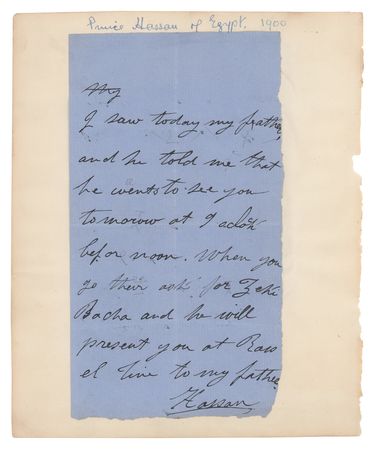 Prince Hassan of Egypt. 1900
My
I saw today my father,
and he told me that
he wents to see you
tomorow at 9 aclok
befor noon. When you
go their ask for Zeki
Bacha and he will
present you at Raas
el Tine to my father
Hassan